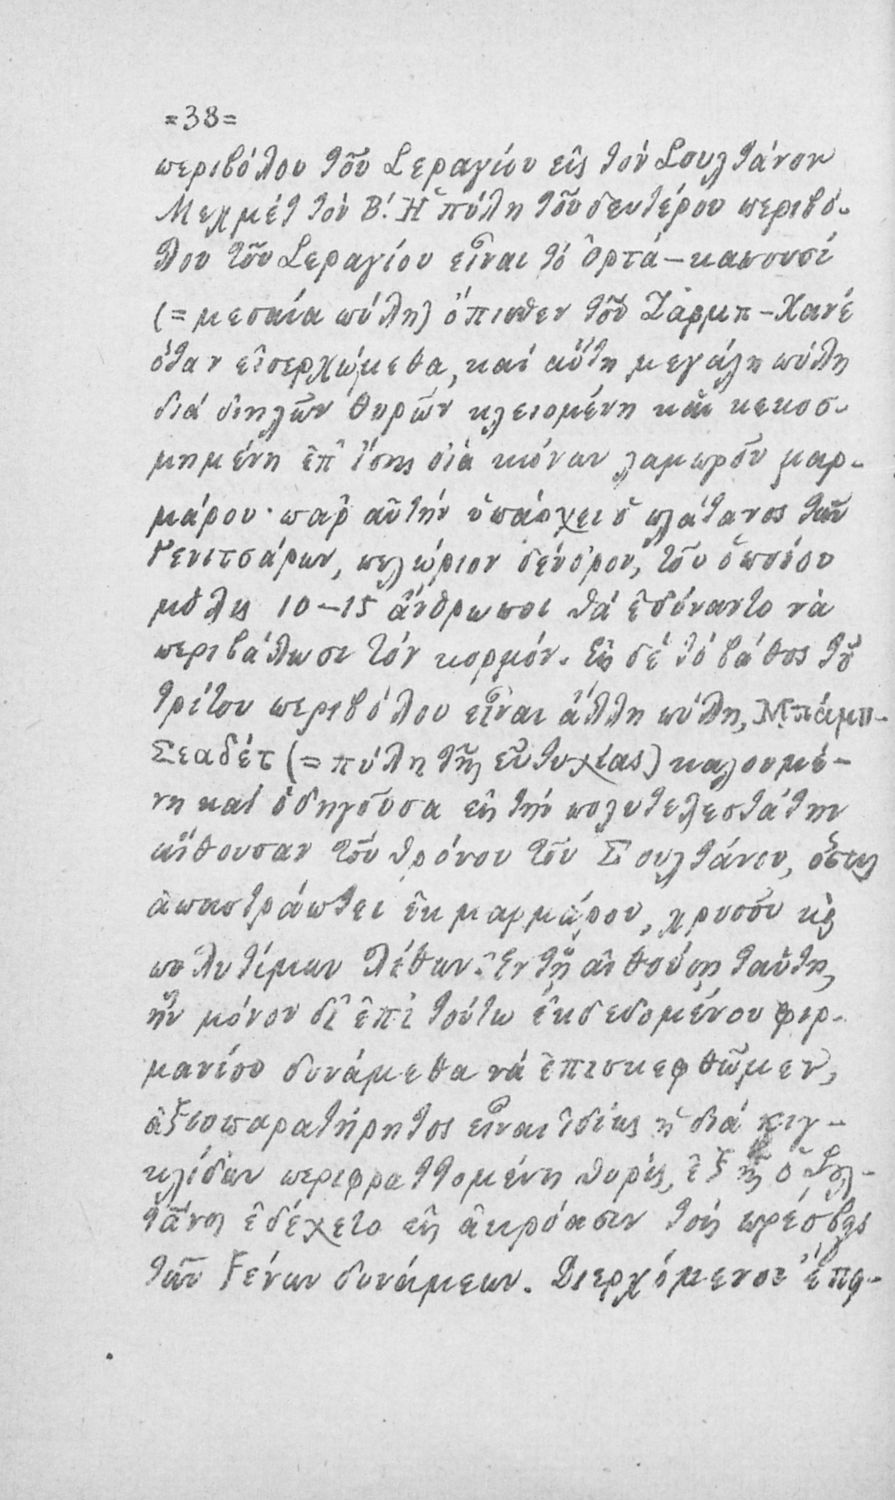 =38=
περιβόλου τοῦ Σεραγίου εἰς τὸν Σουλτάνον
Μεχμὲτ τὸν Β΄. Ἡ πύλη τοῦ δευτέρου περιβό-
λου τοῦ Σεραγίου εἶναι τὸ Ὀρτὰ-καπουσὶ
(=μεσαία πύλη) ὄπισθεν τοῦ Ζὰρμπ-Χανὲ
ὅταν εἰσερχώμεθα, καὶ αὕτη μεγάλη πύλη
διὰ διπλῶν θυρῶν κλειομένη καὶ κεκοσ-
μημένη ἐπ' ἴσης διὰ κιόνων λαμπροῦ μαρ-
μάρου· παρ' αὐτὴν ὑπάρχει ὁ πλάτανος τῶν
Γενιτσάρων, πελώριον δένδρον, τοῦ ὁποίου
μόλις 10-15 ἄνθρωποι θὰ ἐδύναντο νὰ
περιβάλωσι τὸν κορμόν. Εἰς δὲ τὸ βάθος τοῦ
τρίτου περιβόλου εἶναι ἄλλη πύλη, Μπὰμπ-
Σεαδὲτ (=πύλη τῆς εὐτυχίας) καλουμέ-
νη καὶ ὁδηγοῦσα εἰς τὴν πολυτελεστάτην
αἴθουσαν τοῦ θρόνου τοῦ Σουλτάνου, ὅστις
ἀπαστράπτει ἐκ μαρμάρου, χρυσοῦ καὶ
πολυτίμων λίθων. Ἐν τῇ αἰθούσῃ ταύτῃ,
ἣν μόνον δι' ἐπὶ τούτῳ ἐκδεδομένου φιρ-
μανίου δυνάμεθα νὰ ἐπισκεφθῶμεν,
ἀξιοπαρατήρητος εἶναι ἰδίως ἡ διὰ κιγ-
κλίδων περιφραττομένη θυρίς, ἐξ ἧς ὁ Σουλ-
τᾶνος ἐδέχετο εἰς ἀκρόασιν τοὺς πρέσβεις
τῶν ξένων δυνάμεων. Διερχόμενοι ἔπει-